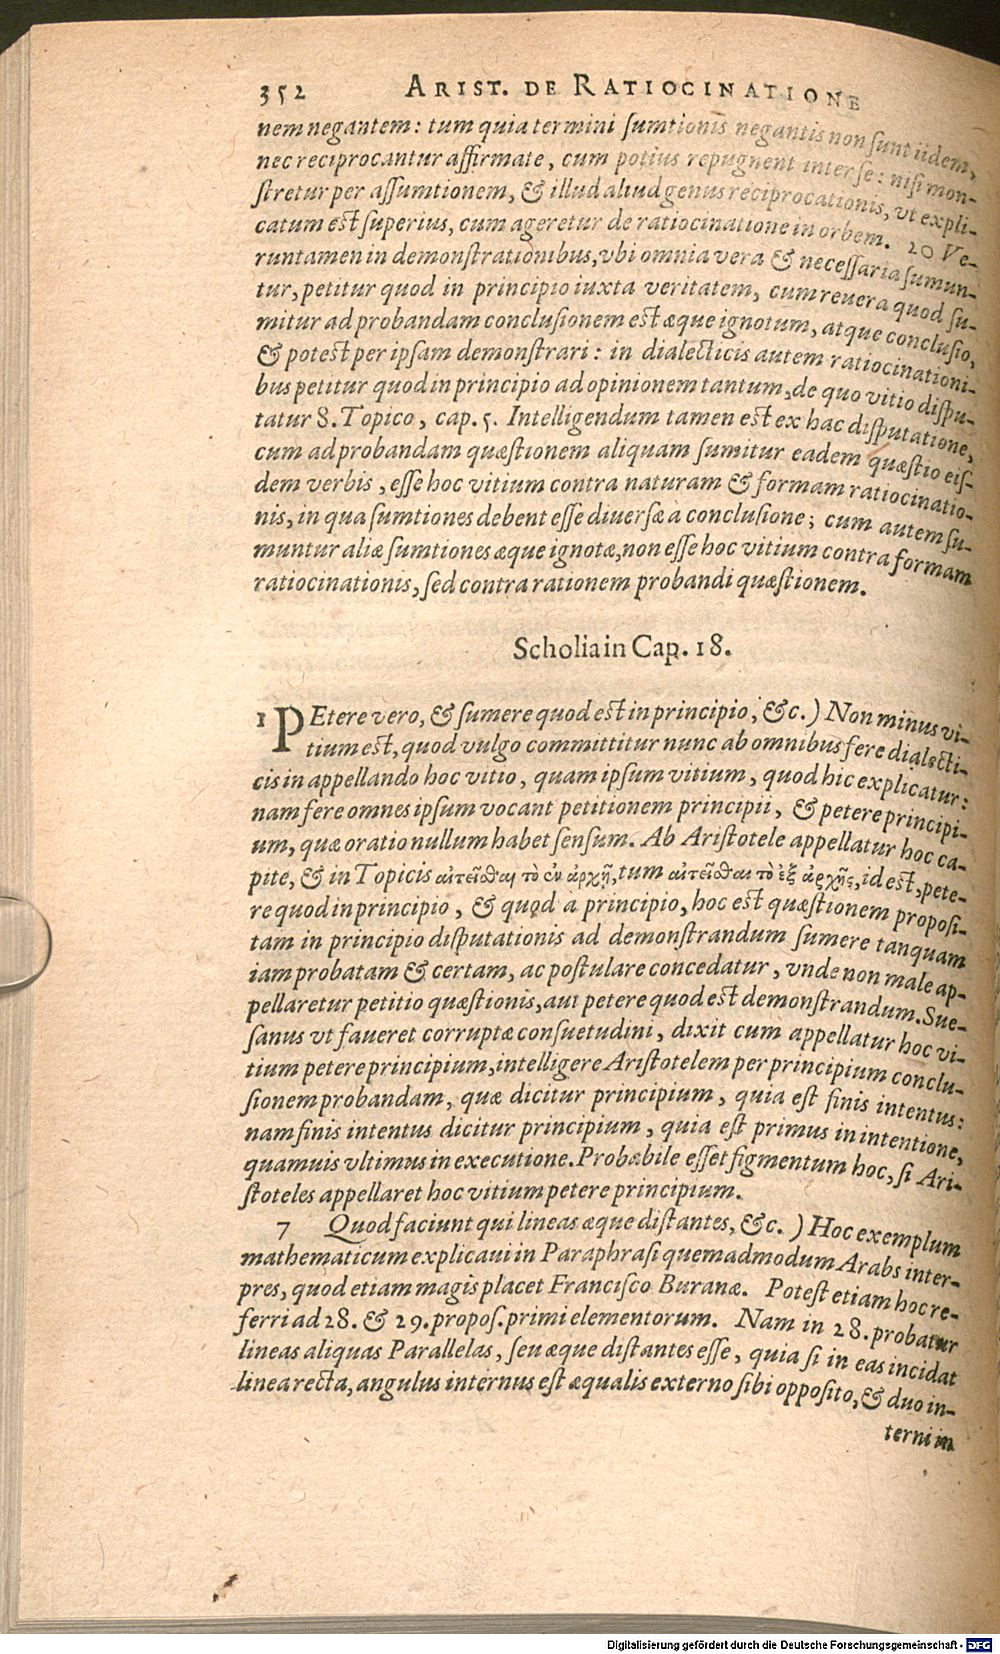 352 ARIST. DE RATIOCINATIONE
nem negantem: tum quia termini ſumtionis negantis non ſunt iidem,
nec reciprocantur affirmate, cum potius repugnent inter ſe: niſi mon-
ſtretur per aſſumtionem, & illud aliud genus reciprocationis, vt expli-
catum eſt ſuperius, cum ageretur de ratiocinatione in orbem. 20 Ve-
runtamen in demonſtrationibus, vbi omnia vera & neceſſaria ſumun-
tur, petitur quod in principio iuxta veritatem, cum reuera quod ſu-
mitur ad probandam concluſionem eſt æque ignotum, atque concluſio,
& poteſt per ipſam demonſtrari: in dialecticis autem ratiocinationi-
bus petitur quod in principio ad opinionem tantum, de quo vitio diſpu-
tatur 8. Topico, cap. 5. Intelligendum tamen eſt ex hac diſputatione,
cum ad probandam quæſtionem aliquam ſumitur eadem quæſtio eiſ-
dem verbis, eſſe hoc vitium contra naturam & formam ratiocinatio-
nis, in qua ſumtiones debent eſſe diuerſæ à concluſione; cum autem ſu-
muntur aliæ ſumtiones æque ignotæ, non eſſe hoc vitium contra formam
ratiocinationis, ſed contra rationem probandi quæſtionem.
Scholia in Cap. 18.
1 PEtere vero, & ſumere quod eſt in principio, &c.) Non minus vi-
tium eſt, quod vulgo committitur nunc ab omnibus fere dialecti-
cis in appellando hoc vitio, quam ipſum vitium, quod hic explicatur:
nam fere omnes ipſum vocant petitionem principii, & petere principi-
um, quæ oratio nullum habet ſenſum. Ab Ariſtotele appellatur hoc ca-
pite, & in Topicis αἰτεῖσθαι τὸ ἐν ἀρχῇ, tum αἰτεῖσθαι τὸ ἐξ ἀρχῆς, id eſt, pete-
re quod in principio, & quod à principio, hoc eſt quæſtionem propoſi-
tam in principio diſputationis ad demonſtrandum ſumere tanquam
iam probatam & certam, ac poſtulare concedatur, vnde non male ap-
pellaretur petitio quæſtionis, aut petere quod eſt demonſtrandum. Sue-
ſanus vt faueret corruptæ conſuetudini, dixit cum appellatur hoc vi-
tium petere principium, intelligere Ariſtotelem per principium conclu-
ſionem probandam, quæ dicitur principium, quia eſt finis intentus:
nam finis intentus dicitur principium, quia eſt primus in intentione,
quamuis vltimus in executione. Probabile eſſet figmentum hoc, ſi Ari-
ſtoteles appellaret hoc vitium petere principium.
7 Quod faciunt qui lineas æque diſtantes, &c.) Hoc exemplum
mathematicum explicaui in Paraphraſi quemadmodum Arabs inter-
pres, quod etiam magis placet Franciſco Buranæ. Poteſt etiam hoc re-
ferri ad 28. & 29. propoſ. primi elementorum. Nam in 28. probatur
lineas aliquas Parallelas, ſeu æque diſtantes eſſe, quia ſi in eas incidat
linea recta, angulus internus eſt æqualis externo ſibi oppoſito, & duo in-
terni in
Digitalisierung gefördert durch die Deutsche Forschungsgemeinschaft - DFG